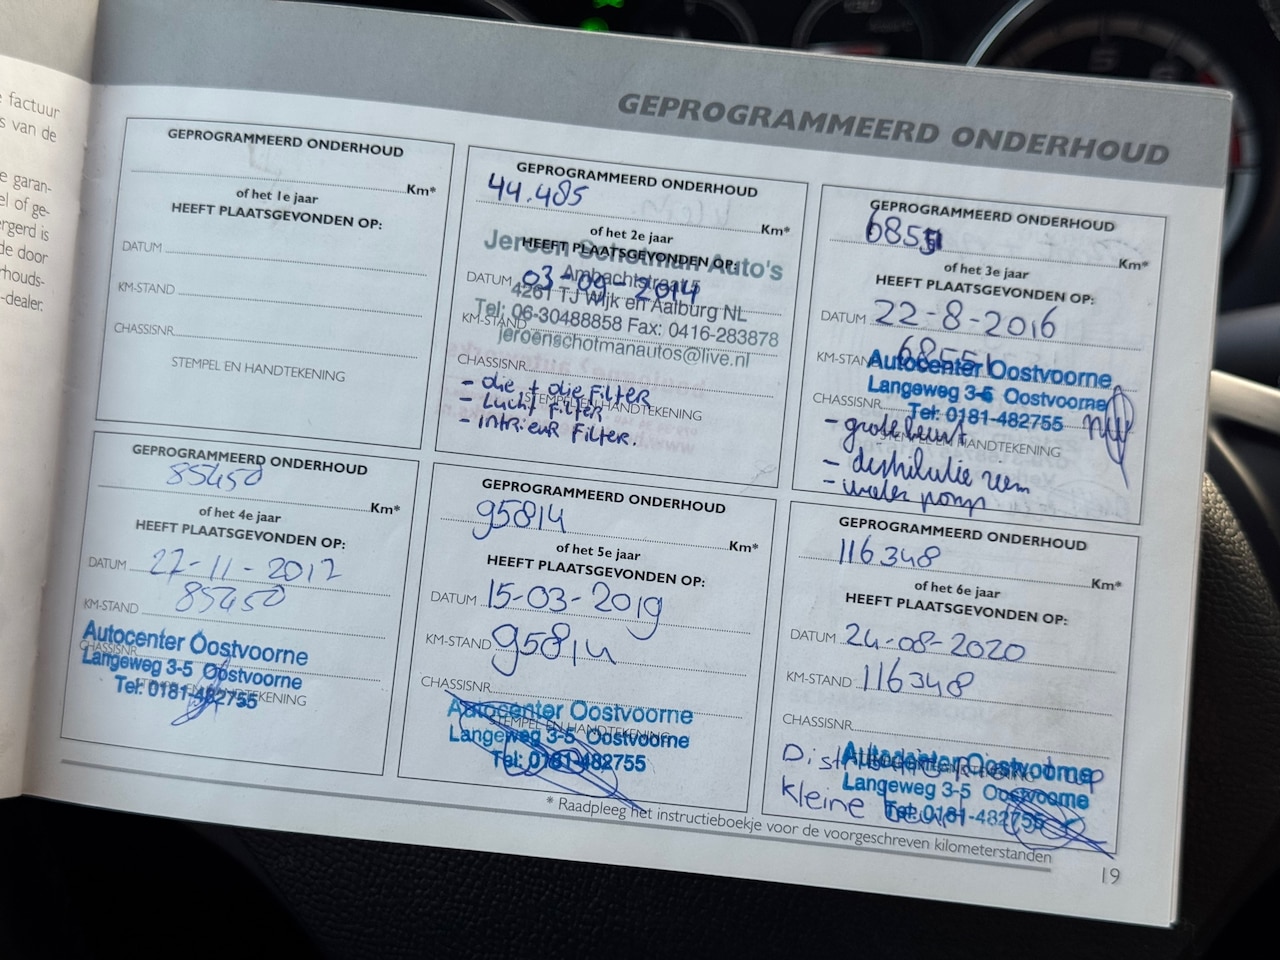 factuur
s van de
e garan-
el of ge-
ergerd is
de door
rhouds-
-dealer.
GEPROGRAMMEERD ONDERHOUD
GEPROGRAMMEERD ONDERHOUD
Km*
of het 1e jaar
HEEFT PLAATSGEVONDEN OP:
DATUM
KM-STAND
CHASSISNR.
STEMPEL EN HANDTEKENING
GEPROGRAMMEERD ONDERHOUD
44.485
Km*
of het 2e jaar
HEEFT PLAATSGEVONDEN OP:
Jeroen Schotman Auto's
Ambachtstraat 5
DATUM 03-09-2014
4261 TJ Wijk en Aalburg NL
KM-STAND
Tel: 06-30488858 Fax: 0416-283878
jeroenschotmanautos@live.nl
CHASSISNR.
- olie + olie Filter
STEMPEL EN HANDTEKENING
- Lucht Filter
- intrieur Filter.
GEPROGRAMMEERD ONDERHOUD
68551
Km*
of het 3e jaar
HEEFT PLAATSGEVONDEN OP:
DATUM 22-8-2016
KM-STAND 68551
Autocenter Oostvoorne
Langeweg 3-5 Oostvoorne
CHASSISNR.
Tel: 0181-482755
- grote beurt
STEMPEL EN HANDTEKENING
- distributie riem
- water pomp
GEPROGRAMMEERD ONDERHOUD
85450
Km*
of het 4e jaar
HEEFT PLAATSGEVONDEN OP:
DATUM 27-11-2017
KM-STAND 85450
Autocenter Oostvoorne
CHASSISNR.
Langeweg 3-5 Oostvoorne
Tel: 0181-482755
STEMPEL EN HANDTEKENING
GEPROGRAMMEERD ONDERHOUD
95814
Km*
of het 5e jaar
HEEFT PLAATSGEVONDEN OP:
DATUM 15-03-2019
KM-STAND 95814
CHASSISNR.
Autocenter Oostvoorne
STEMPEL EN HANDTEKENING
Langeweg 3-5 Oostvoorne
Tel: 0181-482755
GEPROGRAMMEERD ONDERHOUD
116348
Km*
of het 6e jaar
HEEFT PLAATSGEVONDEN OP:
DATUM 24-08-2020
KM-STAND 116348
CHASSISNR.
Autocenter Oostvoorne
Langeweg 3-5 Oostvoorne
kleine beurt
Tel: 0181-482755
* Raadpleeg het instructieboekje voor de voorgeschreven kilometerstanden
19